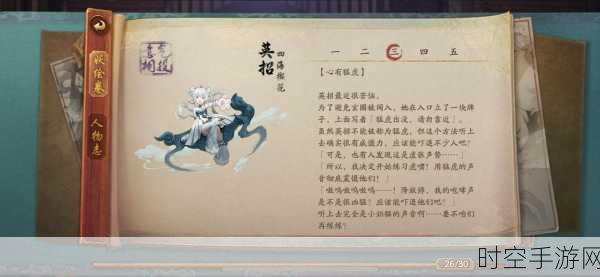 妖绘卷
人物志
英招
四海撷花
一 二 三 四 五
【心有猛虎】
英招最近很苦恼。
为了避免玄圃被闯入，她在入口立了一块牌
子，上面写着「猛虎出没，请勿靠近」。
虽然英招不能被称为猛虎，但这个方法听上
去确实很有威慑力，应该能吓退不少人吧？
「可是，也有人发现这是虚张声势……」
「所以，我决定开始练习虎啸！用猛虎的声
音彻底震慑他们！」
「嗷呜嗷呜嗷呜——！降妖师，我的咆哮声
是不是很凶猛？应该能吓退他们吧？」
听上去完全是小奶猫的声音啊……要不咱们
再练练？
26/30
时空手游网